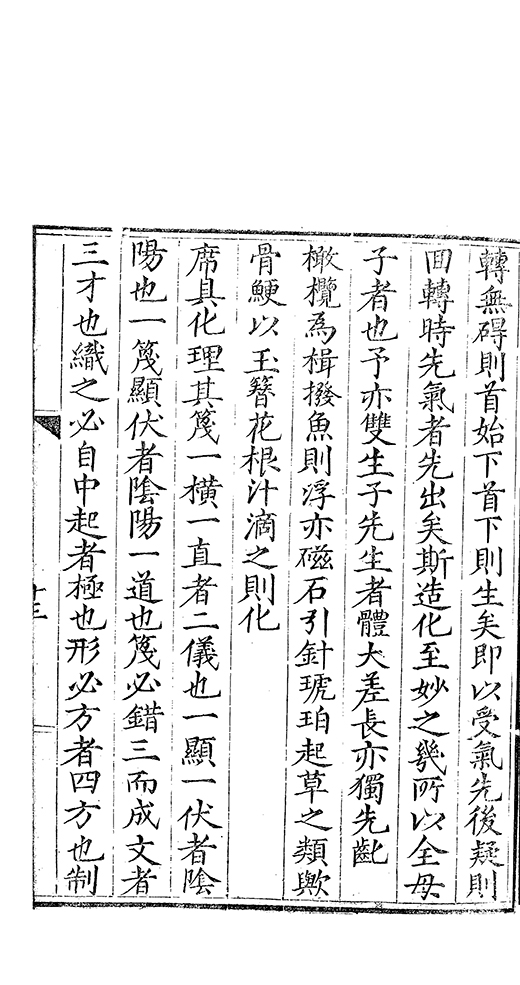 轉無碍則首始下首下則生矣即以受氣先後疑則
囬轉時先氣者先出矣斯造化至妙之幾所以全母
子者也予亦雙生子先生者體大差長亦獨先齔
橄欖為楫撥魚則浮亦磁石引針琥珀起草之類歟
骨鯁以玉簪花根汁滴之則化
席具化理其篾一橫一直者二儀也一顯一伏者陰
陽也一篾顯伏者陰陽一道也篾必錯三而成文者
三才也織之必自中起者極也形必方者四方也制
十三